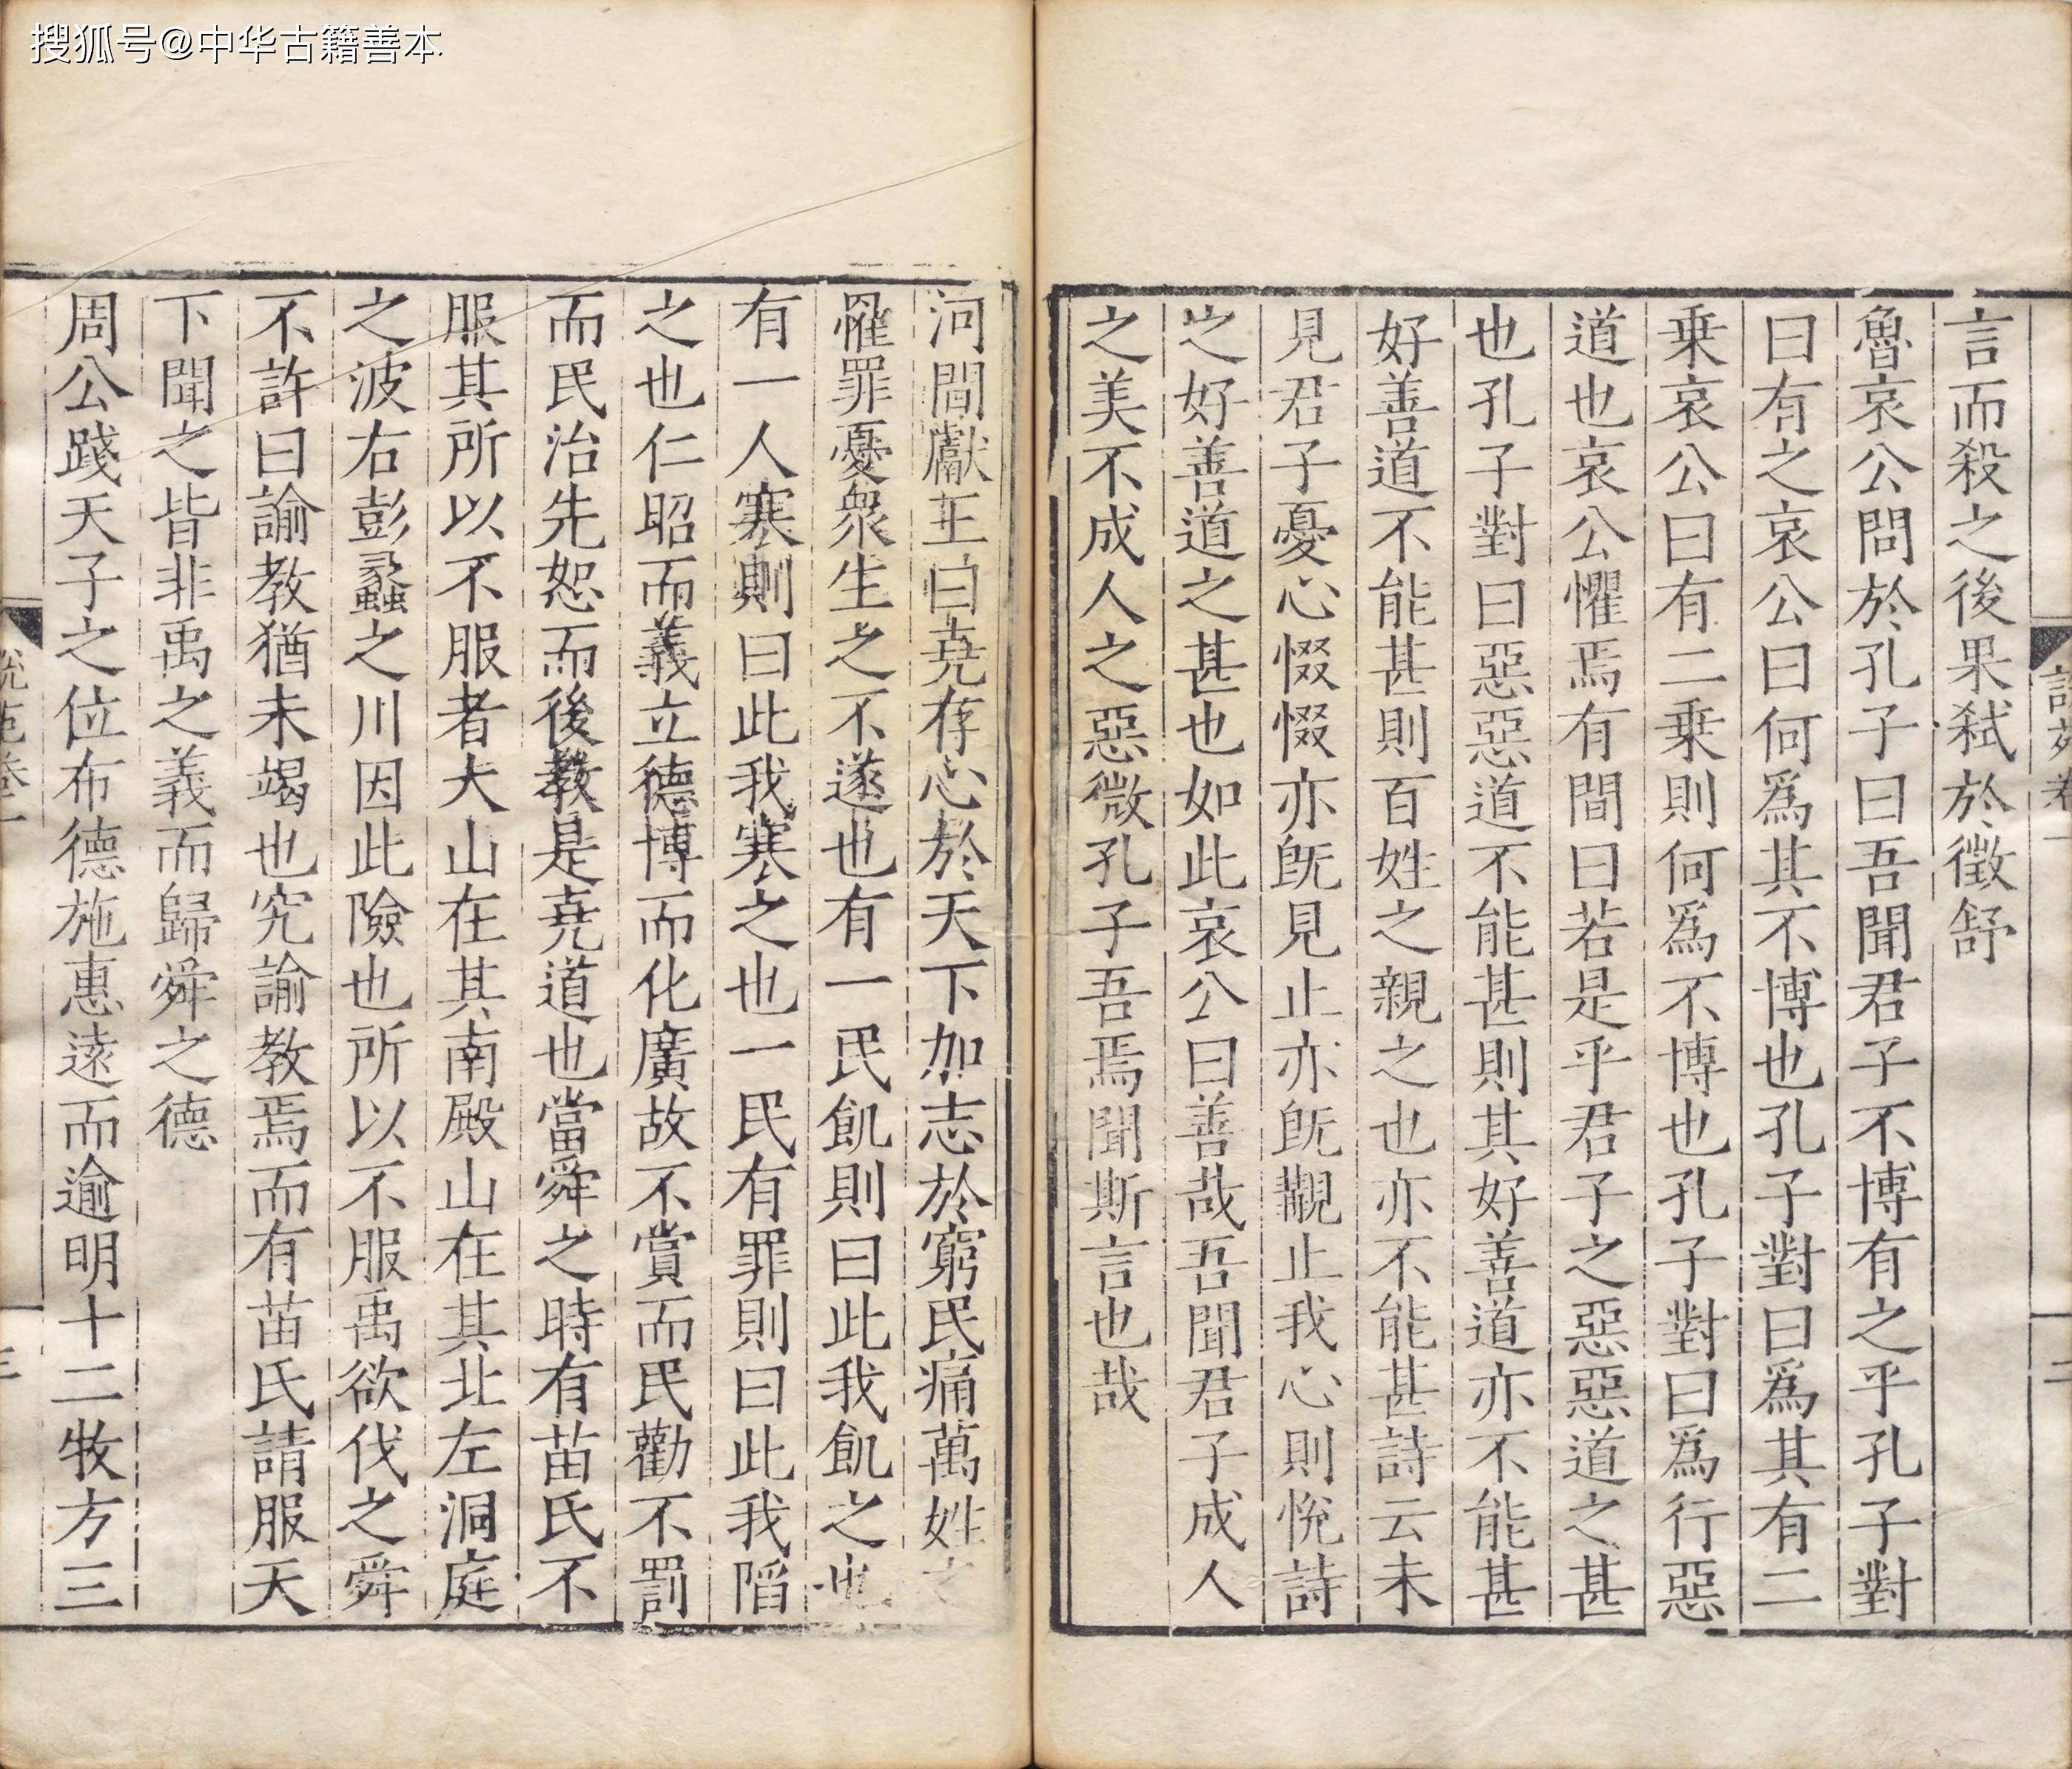 搜狐号@中华古籍善本
言而殺之後果弑於徵舒
魯哀公問於孔子曰吾聞君子不博有之乎孔子對
曰有之哀公曰何爲其不博也孔子對曰爲其有二
乗哀公曰有二乗則何爲不博也孔子對曰爲行惡
道也哀公懼焉有間曰若是乎君子之惡惡道之甚
也孔子對曰惡惡道不能甚則其好善道亦不能甚
好善道不能甚則百姓之親之也亦不能甚詩云未
見君子憂心惙惙亦旣見止亦旣觀止我心則悅詩
之好善道之甚也如此哀公曰善哉吾聞君子成人
之美不成人之惡微孔子吾焉聞斯言也哉
河間獻王曰堯存心於天下加志於窮民痛萬姓之
罹罪憂衆生之不遂也有一民飢則曰此我飢之也
有一人寒則曰此我寒之也一民有罪則曰此我陷
之也仁昭而義立德博而化廣故不賞而民勸不罰
而民治先恕而後教是堯道也當舜之時有苗氏不
服其所以不服者大山在其南殿山在其北左洞庭
之波右彭蠡之川因此險也所以不服禹欲伐之舜
不許曰諭教猶未竭也究諭教焉而有苗氏請服天
下聞之皆非禹之義而歸舜之德
周公踐天子之位布德施惠遠而逾明十二牧方三